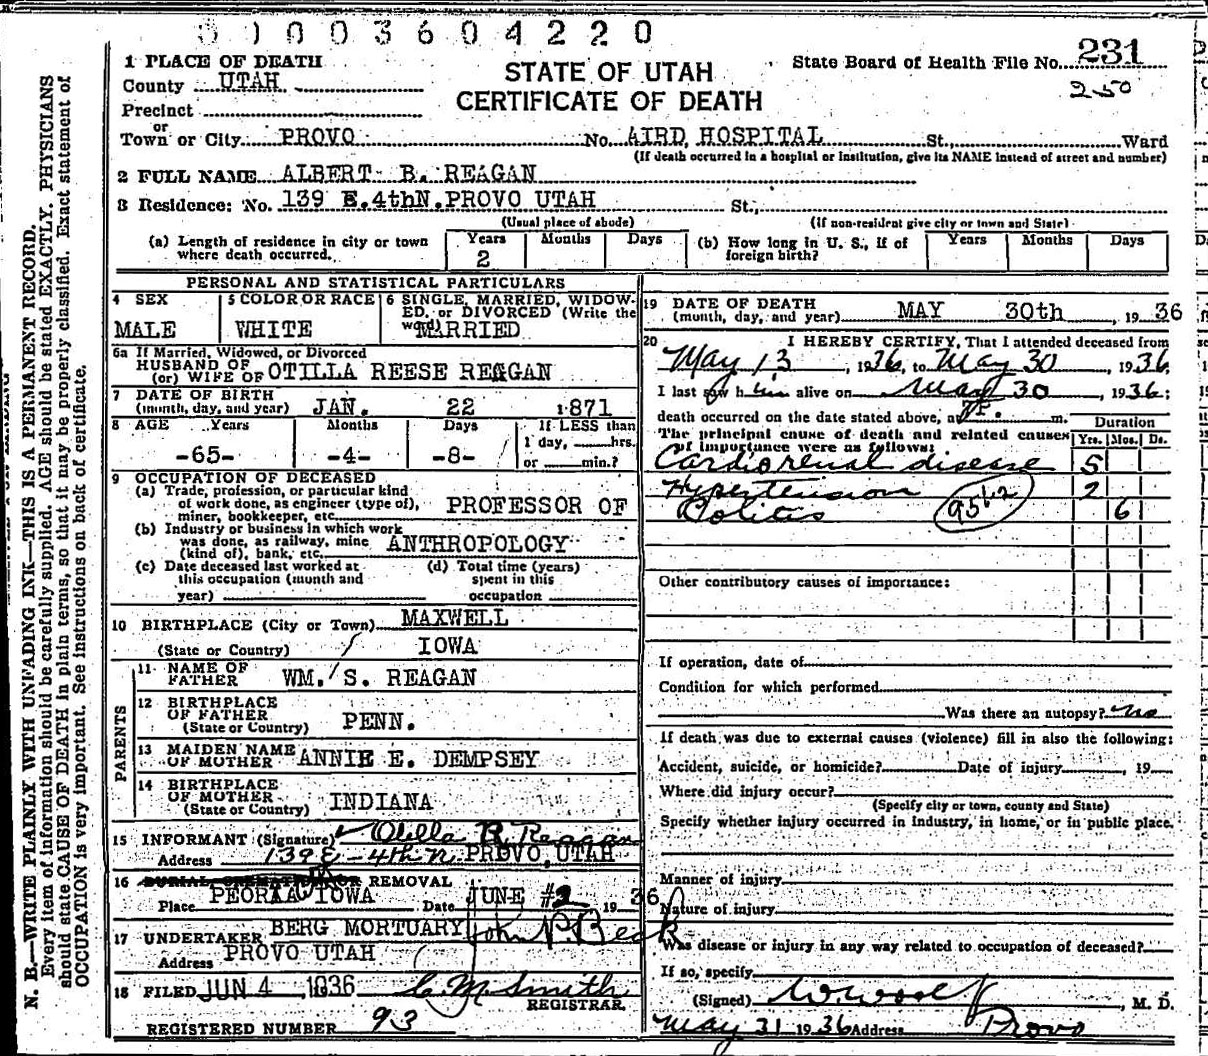 3 1 0 0 3 6 0 4 2 2 0
STATE OF UTAH
CERTIFICATE OF DEATH
State Board of Health File No. 231
250
1 PLACE OF DEATH
County UTAH
Precinct
or
Town or City PROVO No. AIRD HOSPITAL St. Ward
(If death occurred in a hospital or institution, give its NAME instead of street and number)
2 FULL NAME ALBERT B. REAGAN
3 Residence: No. 139 E.4thN.PROVO UTAH St.,
(Usual place of abode) (If non-resident give city or town and State)
(a) Length of residence in city or town where death occurred. Years 2 Months Days (b) How long in U. S., if of foreign birth? Years Months Days
PERSONAL AND STATISTICAL PARTICULARS
4 SEX 5 COLOR OR RACE 6 SINGLE, MARRIED, WIDOW-
ED, or DIVORCED (Write the
word)
MALE WHITE MARRIED
6a If Married, Widowed, or Divorced
HUSBAND OF
(or) WIFE OF OTILLA REESE REAGAN
7 DATE OF BIRTH
(month, day, and year) JAN. 22 1871
8 AGE Years Months Days If LESS than
1 day, hrs.
-65- -4- -8- or min.?
9 OCCUPATION OF DECEASED
(a) Trade, profession, or particular kind
of work done, as engineer (type of), PROFESSOR OF
miner, bookkeeper, etc.
(b) Industry or business in which work
was done, as railway, mine ANTHROPOLOGY
(kind of), bank, etc.
(c) Date deceased last worked at
this occupation (month and
year)
(d) Total time (years)
spent in this
occupation
10 BIRTHPLACE (City or Town) MAXWELL
(State or Country) IOWA
PARENTS
11 NAME OF
FATHER WM. S. REAGAN
12 BIRTHPLACE
OF FATHER PENN.
(State or Country)
13 MAIDEN NAME
OF MOTHER ANNIE E. DEMPSEY
14 BIRTHPLACE
OF MOTHER INDIANA
(State or Country)
15 INFORMANT (Signature) Otilla R. Reagan
Address 139 E - 4th N. PROVO, UTAH
16 BURIAL, CREMATION OR REMOVAL
Place PEORIA IOWA Date JUNE #2 19 36
17 UNDERTAKER BERG MORTUARY John P. Beck
Address PROVO UTAH
18 FILED JUN 4 1936 C. M. Smith
REGISTRAR.
REGISTERED NUMBER 93
19 DATE OF DEATH
(month, day, and year) MAY 30th, 19 36
20 I HEREBY CERTIFY, That I attended deceased from
May 13, 1936, to May 30, 1936.
I last saw him alive on May 30, 1936;
death occurred on the date stated above, at 7 P. m.
The principal cause of death and related causes
of importance were as follows:
Duration
Yrs. Mos. Ds.
Cardiorenal disease 5
Hypertension 2
Colitis 6
Other contributory causes of importance:
If operation, date of
Condition for which performed
Was there an autopsy? no
If death was due to external causes (violence) fill in also the following:
Accident, suicide, or homicide? Date of injury, 19
Where did injury occur?
(Specify city or town, county and State)
Specify whether injury occurred in industry, in home, or in public place.
Manner of injury
Nature of injury
Was disease or injury in any way related to occupation of deceased?
If so, specify
(Signed) W. Woolf, M. D.
May 31 1936 Address Provo
N. B.—WRITE PLAINLY WITH UNFADING INK—THIS IS A PERMANENT RECORD.
Every item of information should be carefully supplied. AGE should be stated EXACTLY. PHYSICIANS
should state CAUSE OF DEATH in plain terms, so that it may be properly classified. Exact statement of
OCCUPATION is very important. See instructions on back of certificate.